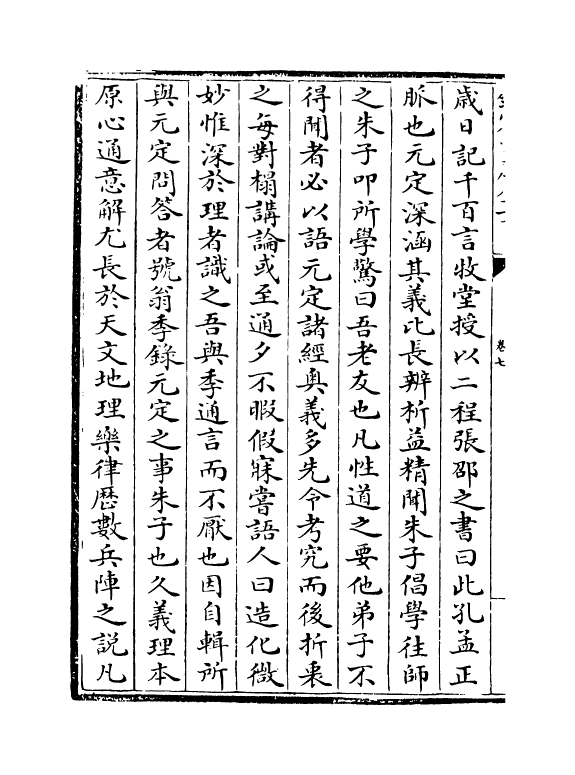 卷七
歲日記千百言牧堂授以二程張邵之書曰此孔孟正
脈也元定深涵其義比長辨析益精聞朱子倡學往師
之朱子叩所學驚曰吾老友也凡性道之要他弟子不
得聞者必以語元定諸經奧義多先令考究而後折衷
之每對榻講論或至通夕不暇假寐嘗語人曰造化微
妙惟深於理者識之吾與季通言而不厭也因自輯所
與元定問答者號翁季錄元定之事朱子也久義理本
原心通意解尤長於天文地理樂律歷數兵陣之說凡